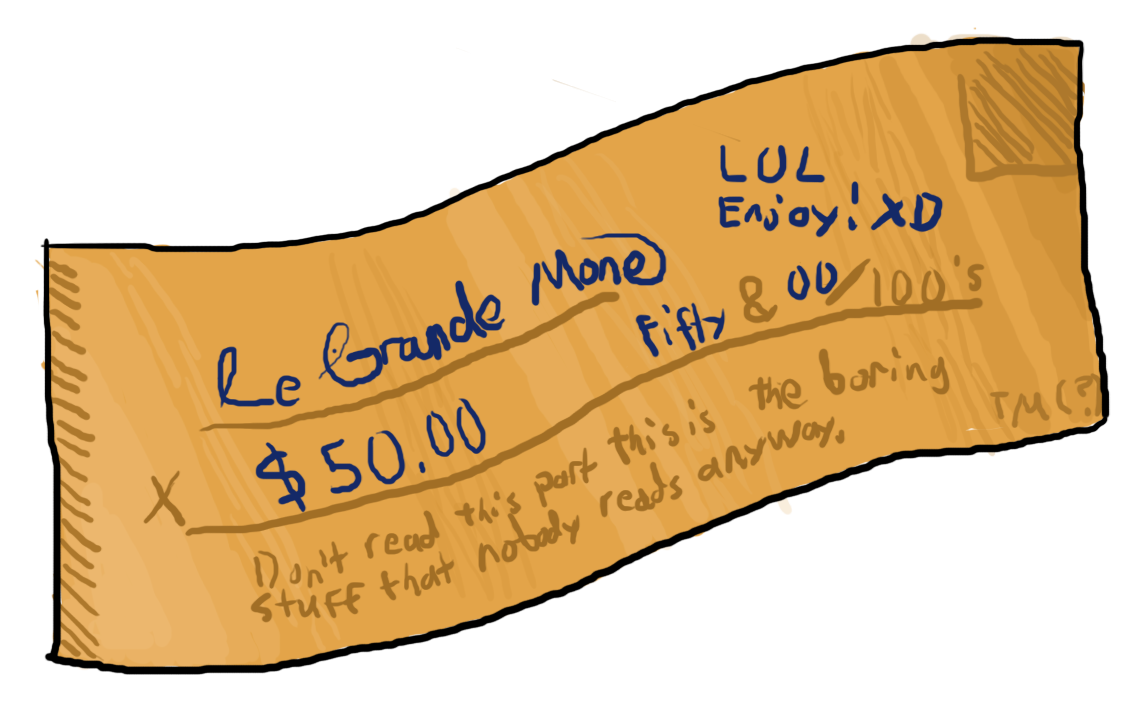 LUL
Enjoy! XD
Le Grande Mone
Fifty & 00/100's
X $50.00
Don't read this part this is the boring
stuff that nobody reads anyway.
TM(?)